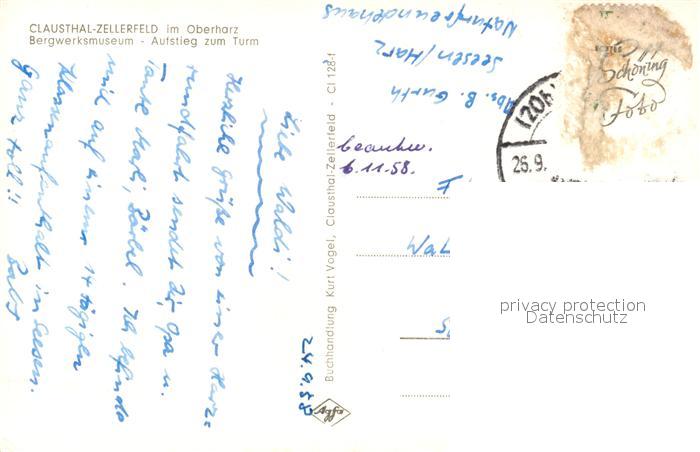 CLAUSTHAL-ZELLERFELD im Oberharz
Bergwerksmuseum - Aufstieg zum Turm
24.9.58
Liebe Waldi!
Herzliche Grüße von einer Harz=
rundfahrt sendet Dir, Opa u.
Tante Mari, Bärbel. Ich befinde
mich auf einem 14 tägigen
Klassenaufenthalt in Seesen.
Ganz toll!!
Buchhandlung Kurt Vogel, Clausthal-Zellerfeld - Cl 128-1
Abs. B. Gurth
Seesen/Harz
Naturfreundehaus
beantw.
6.11.58.
(20b)
26.9.
Schöning
Foto
privacy protection
Datenschutz